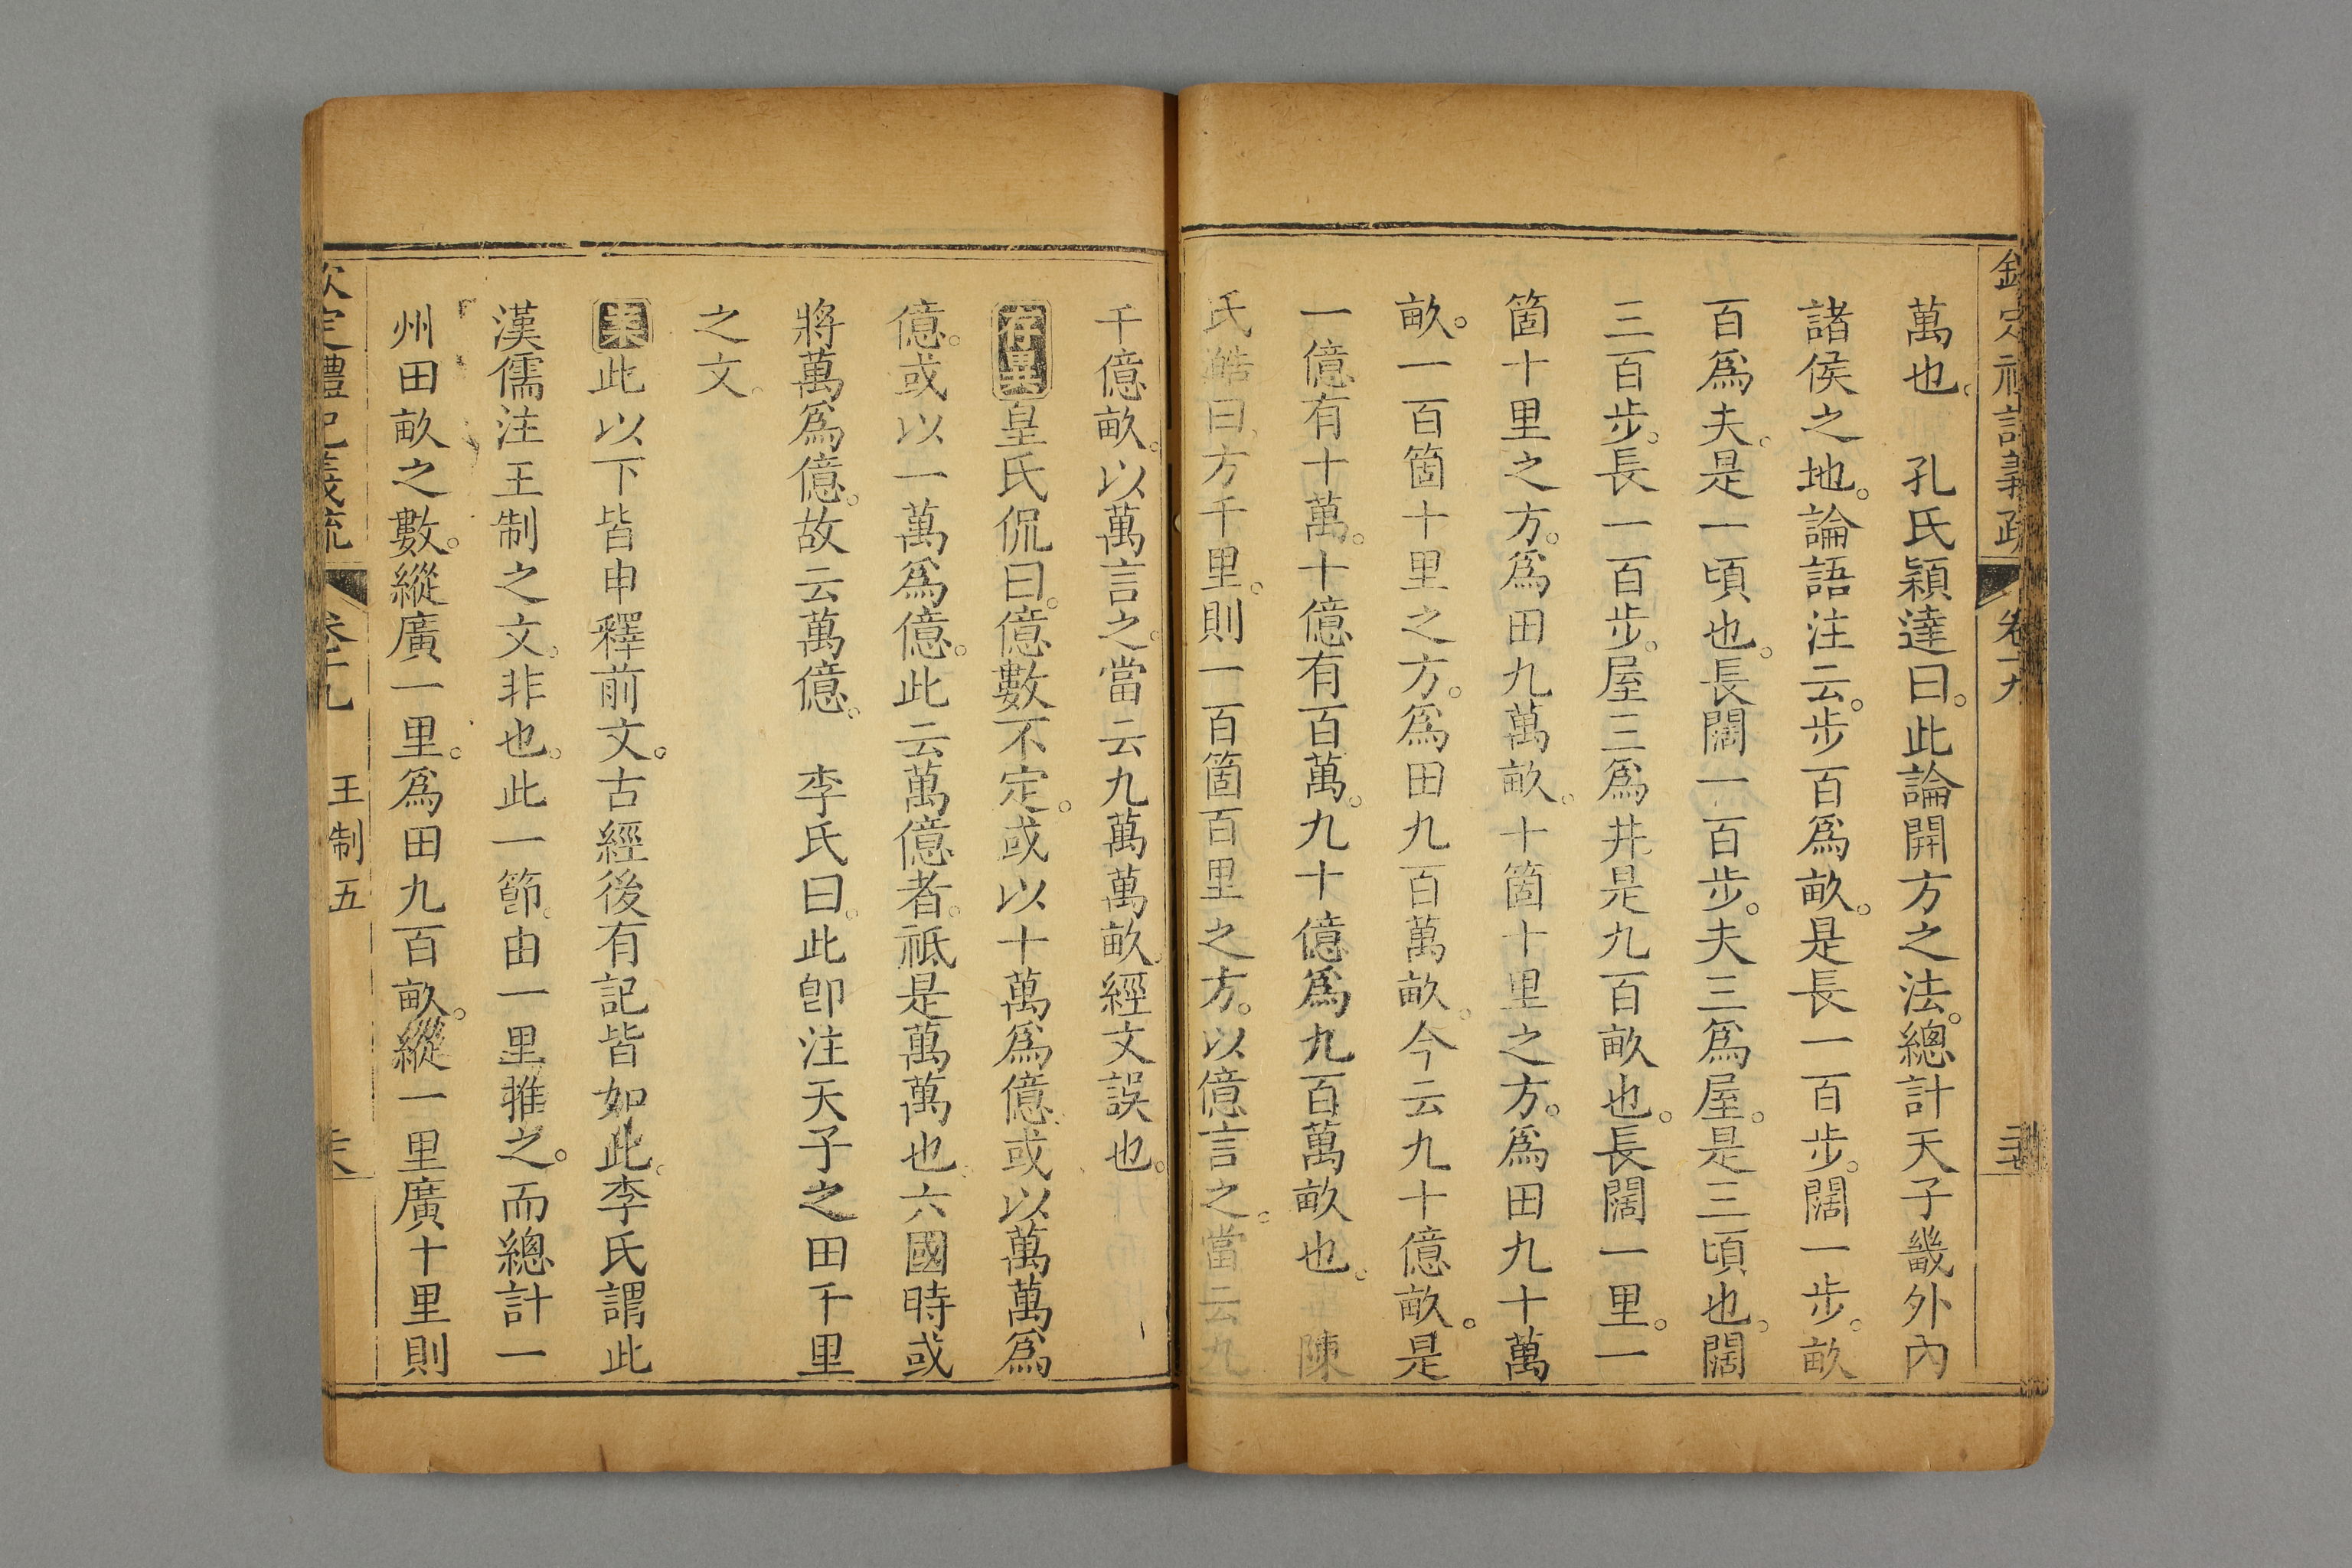 萬也。 孔氏穎達曰。此論開方之法。總計天子畿外內
諸侯之地。論語注云。步百爲畝。是長一百步。闊一步。畝
百爲夫。是一頃也。長闊一百步。夫三爲屋。是三頃也。闊
三百步。長一百步。屋三爲井。是九百畝也。長闊一里。一
箇十里之方。爲田九萬畝。十箇十里之方。爲田九十萬
畝。一百箇十里之方。爲田九百萬畝。今云九十億畝。是
一億有十萬。十億有百萬。九十億爲九百萬畝也。 陳
氏澔曰。方千里。則一百箇百里之方。以億言之。當云九
千億畝。以萬言之。當云九萬萬畝。經文誤也。
存異皇氏侃曰。億數不定。或以十萬爲億。或以萬萬爲
億。或以一萬爲億。此云萬億者。祗是萬萬也。六國時或
將萬爲億。故云萬億。 李氏曰。此卽注天子之田千里
之文。
案此以下皆申釋前文。古經後有記皆如此。李氏謂此
漢儒注王制之文。非也。此一節。由一里推之。而總計一
州田畝之數。縱廣一里。爲田九百畝。縱一里廣十里則
欽定禮記義疏 卷十九 王制五